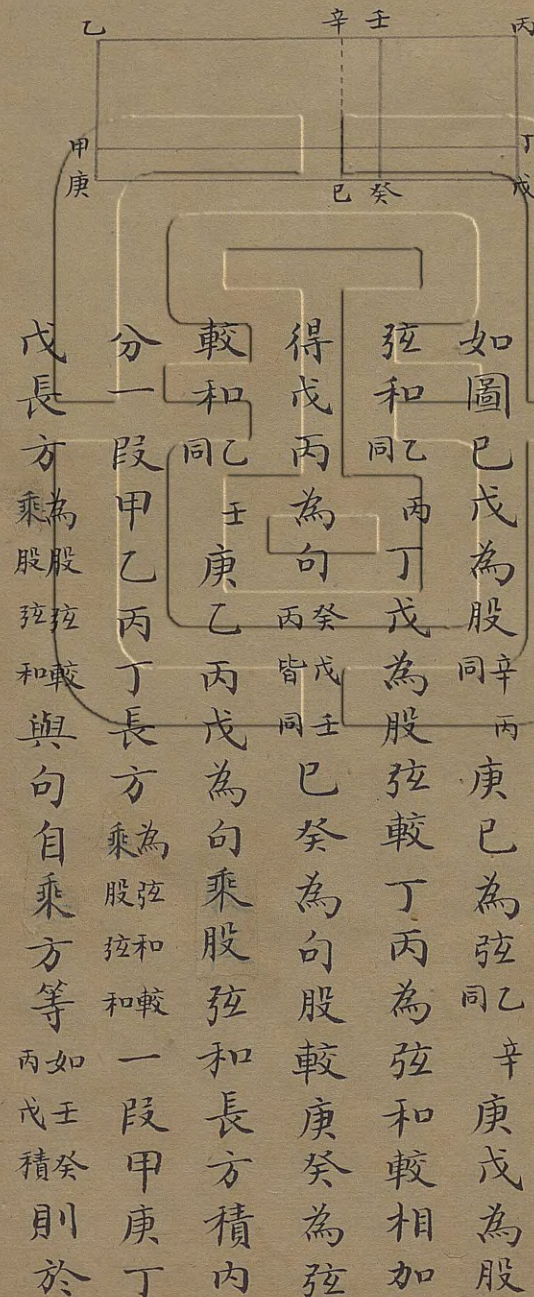 乙
辛
壬
丙
甲
丁
庚
巳
癸
戊
如圖巳戊為股辛丙同庚巳為弦乙辛同庚戊為股
弦和乙丙同丁戊為股弦較丁丙為弦和較相加
得戊丙為句癸戊壬丙皆同巳癸為句股較庚癸為弦
較和乙壬同庚乙丙戊為句乘股弦和長方積內
分一段甲乙丙丁長方為弦和較乘股弦和一段甲庚丁
戊長方為股弦較乘股弦和與句自乘方等如壬癸丙戊積則於